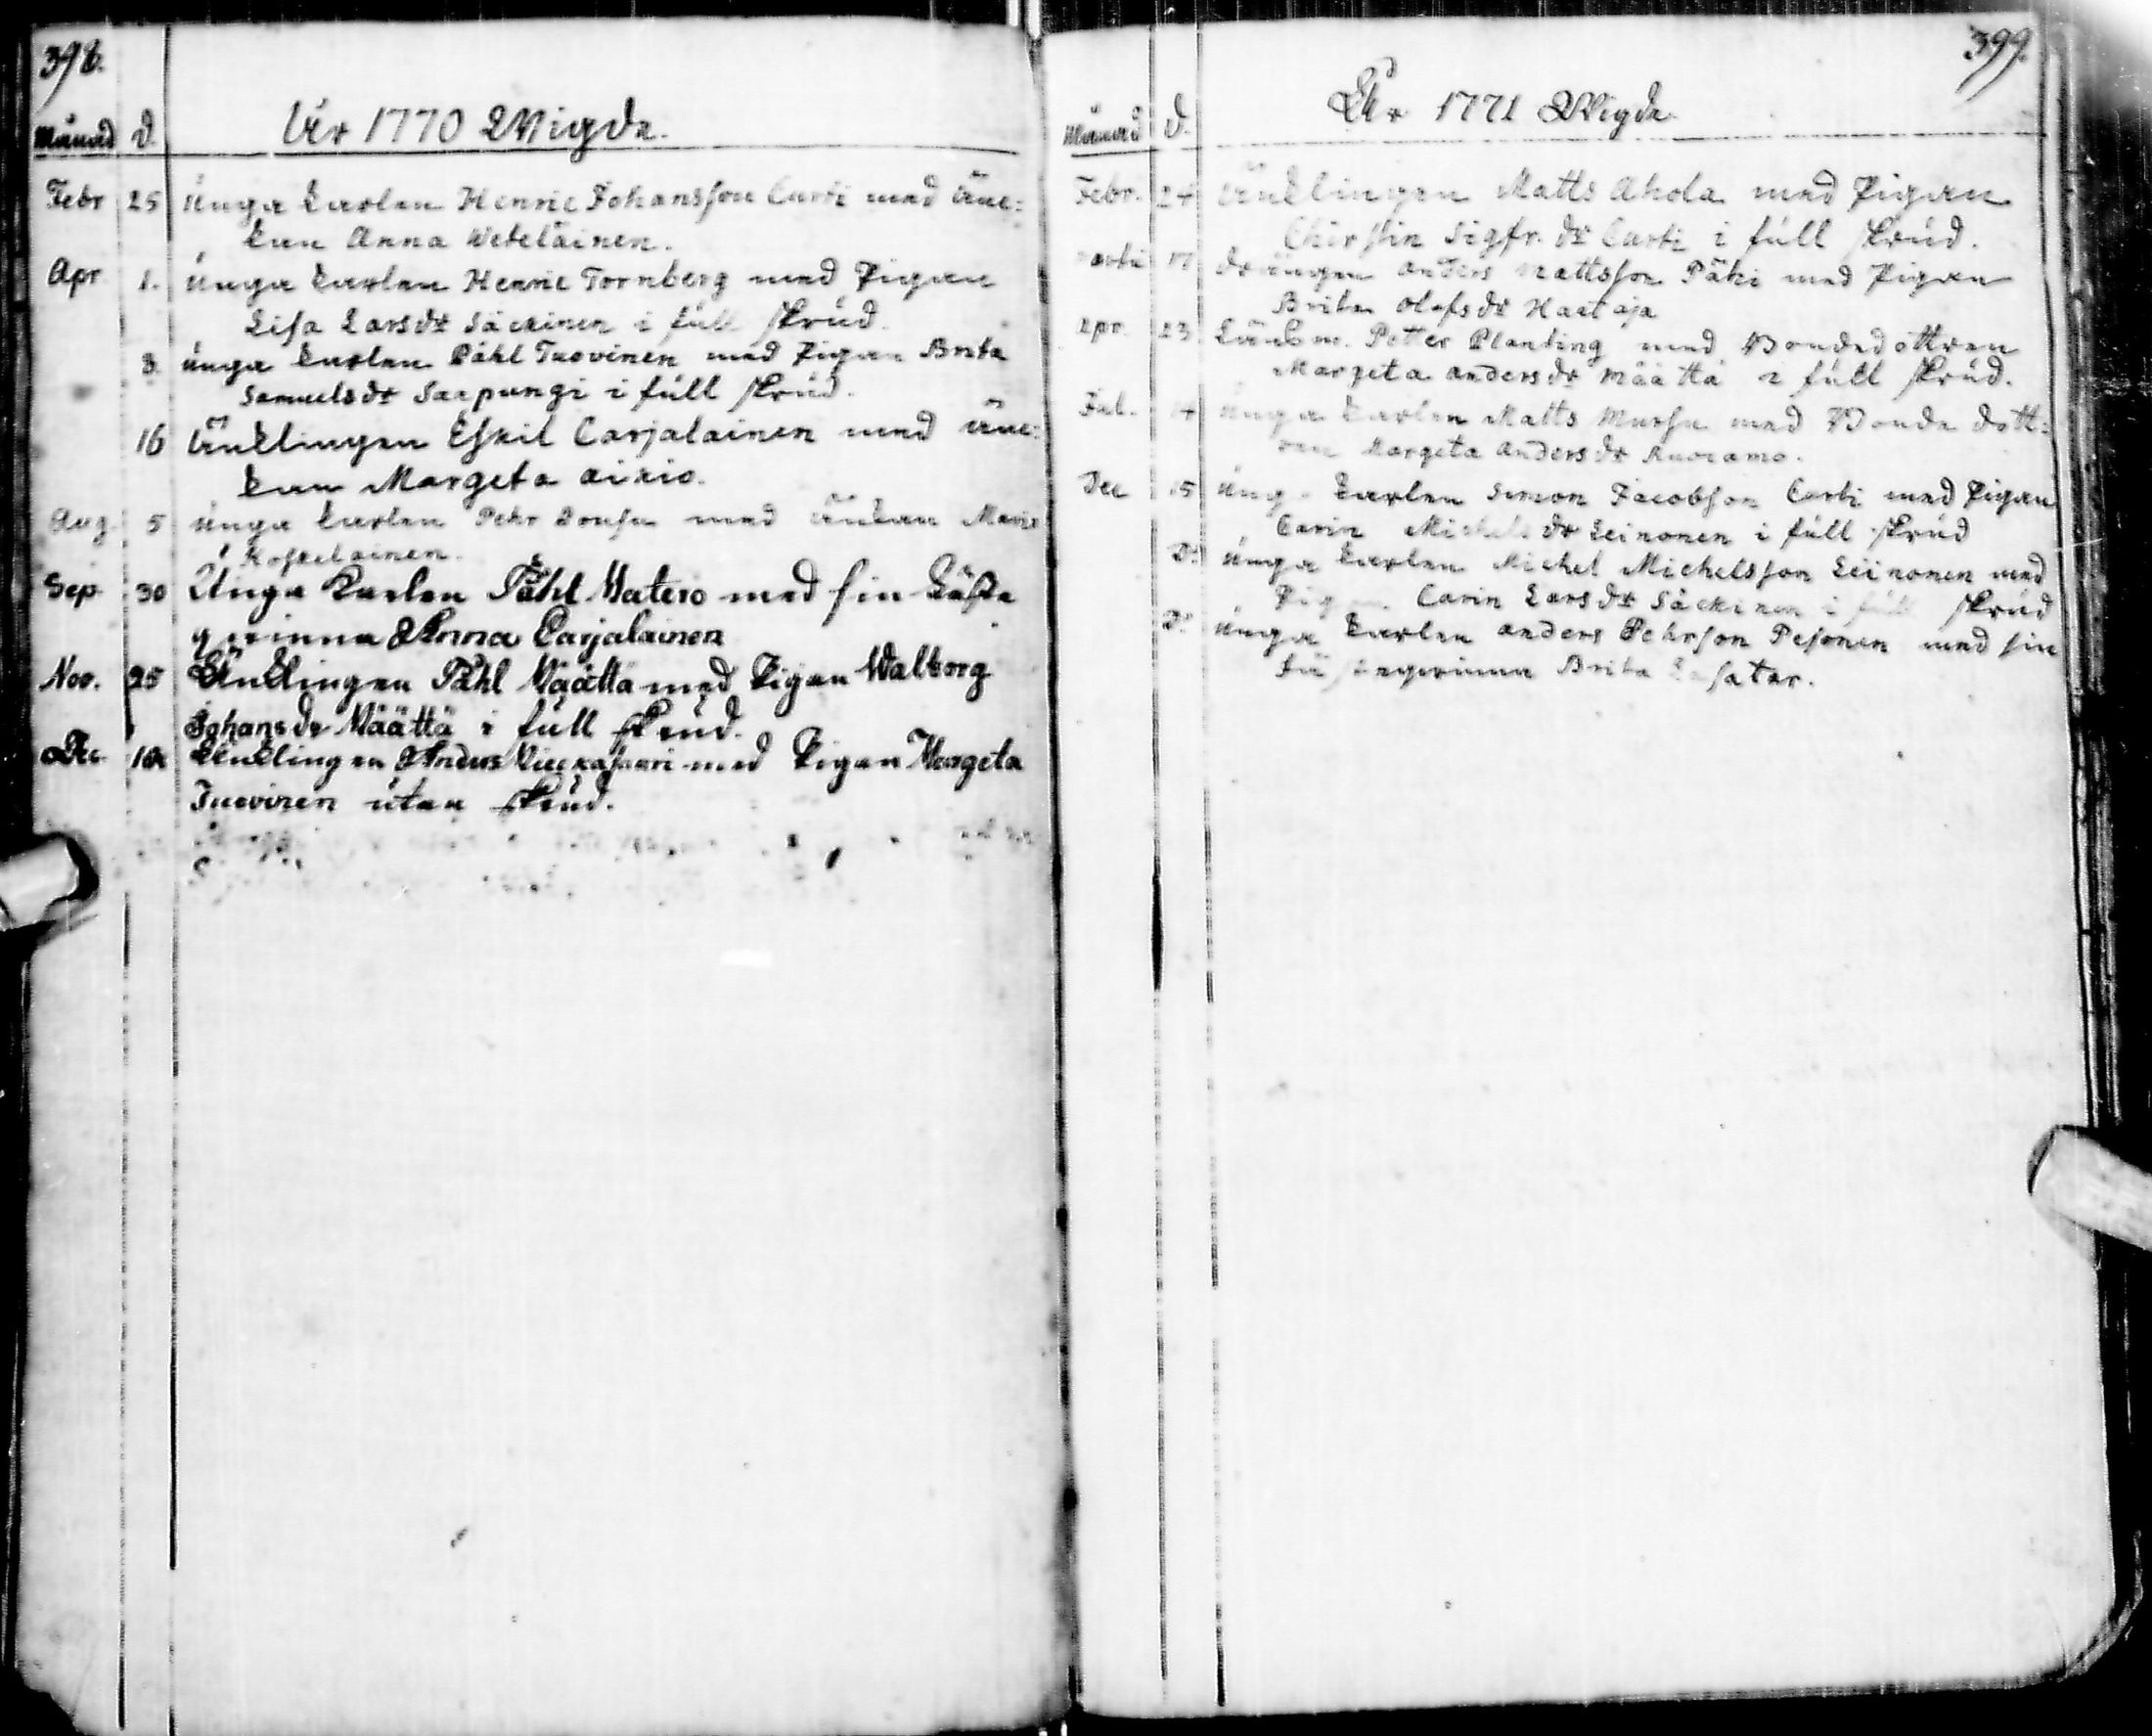 398.
Månad d. År 1770 Wigde.
Febr 25 Unga karlen Henric Johansson Curti med än=
kan Anna Weteläinen.
Apr 1. Unga karlen Henric Tornberg med Pigan
Lisa Larsdr Säckinen i full skrud.
3. Unga karlen Påhl Tuovinen med Pigan Brita
Samuelsdr Saapungi i full skrud.
16 Änklingen Eskil Carjalainen med än=
kan Margeta Aikio.
Aug. 5 Unga karlen Pehr med änkan Maria
Koskelainen.
Sep. 30 Unga Karlen Påhl Matero med sin Läste
qvinna Anna Carjalainen
Nov. 25 Änklingen Påhl Määttä med Pigan Walborg
Johansdr Määttä i full skrud.
Dec. Änklingen Anders med Pigan Margeta
Tuovinen utan skrud.
399.
Månad d. År 1771 Wigde
Febr. 24 Änklingen Matts Ahola med Pigan
Chirstin Sigfr. dr Curti i full skrud.
17 Drängen Anders Mattsson Päki med Pigan
Brita Olofsdr Haataja
Apr. 23 Länsm. Petter Planting med Bondedottren
Margeta Andersdr Määttä i full skrud.
Jul. 14 Unga karlen Matts Mursu med Bonde dott=
ren Margeta Andersdr Kuoramo.
Dec 15 Unga karlen Simon Jacobson Curti med Pigan
Carin Michelsdr Leinonen i full skrud
Do Unga karlen Michel Michelsson Leinonen med
Pigan Carin Larsdr Säckinen i full skrud
Do Unga karlen Anders Pehrson Pesonen med sin
fästeqvinna Brita